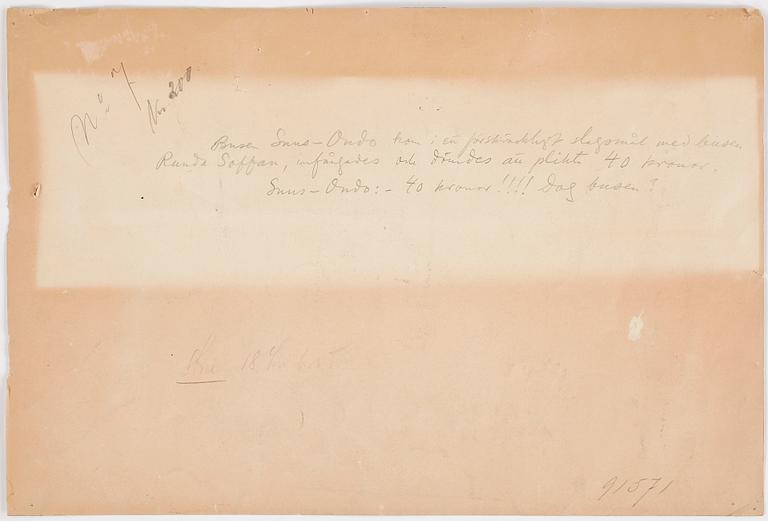 No 7
No 200
Busen Snus-Ondo kom i ett förskräckligt slagsmål med busen
Runda Soffan, infångades och dömdes att plikta 40 kronor.
Snus-Ondo:- 40 kronor!!!! Dog busen?
18
91571